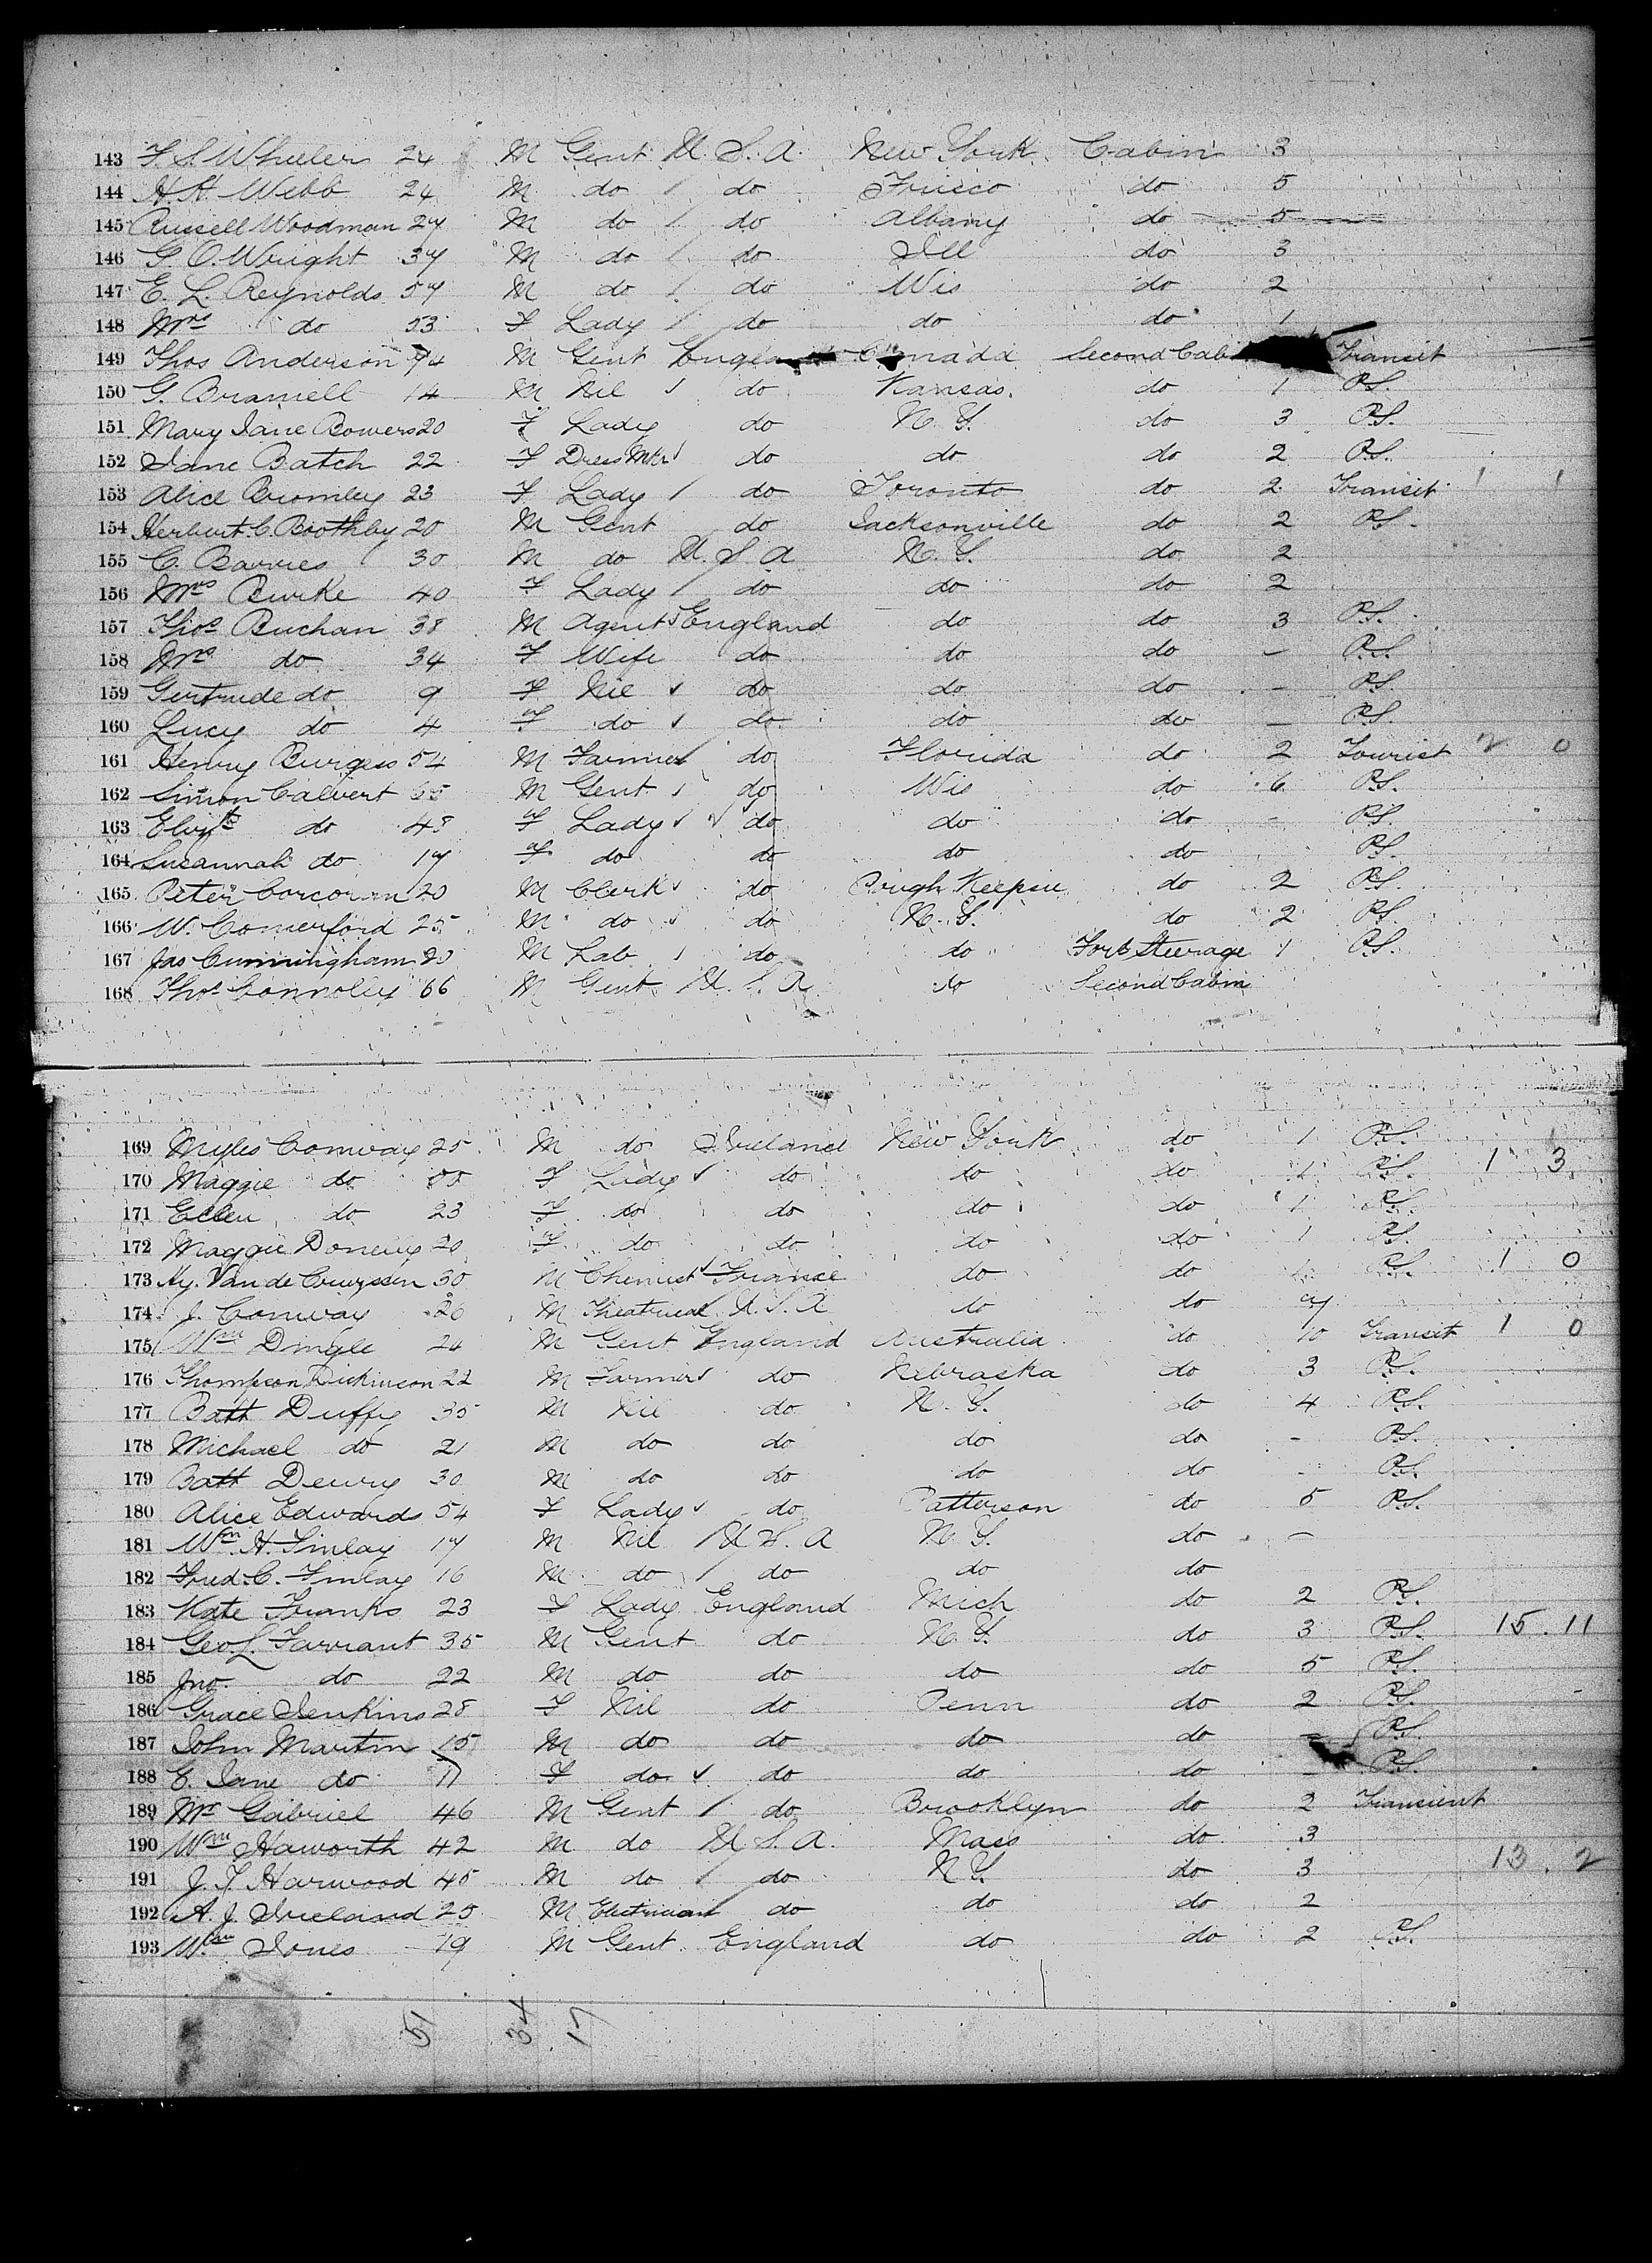 143 F. S. Wheeler 24 M Gent U.S.A. New York Cabin 3
144 H. H. Webb 24 M do do Frisco do 5
145 Russell Woodman 27 M do do Albany do 5
146 G. O. Wright 37 M do do Ill do 3
147 E. L. Reynolds 57 M do do Wis do 2
148 Mrs do 53 F Lady do do do 1
149 Thos Anderson M Gent England Canada Second Cabin Transit
150 G. Bramell 14 M Nil do Kansas. do 1 P.S.
151 Mary Jane Bowers 20 F Lady do N.Y. do 3 P.S.
152 Jane Batch 22 F Dress Mkr do do do 2 P.S.
153 Alice Bromley 23 F Lady do Toronto do 2 Transit 1 1
154 Herbert C. Boothby 20 M Gent do Jacksonville do 2 P.S.
155 C. Barres 30 M do U.S.A N.Y. do 2
156 Mrs Burke 40 F Lady do do do 2
157 Thos Buchan 38 M Agent England do do 3 P.S.
158 Mrs do 34 F Wife do do do – P.S.
159 Gertrude do 9 F Nil do do do – P.S.
160 Lucy do 4 F do do do do – P.S.
161 Henry Burgess 54 M Farmer do Florida do 2 Tourist 2 0
162 Simon Calvert M Gent do Wis do 6 P.S.
163 Elizth do 48 F Lady do do do - P.S.
164 Susannah do 17 F do do do do P.S.
165 Peter Corcoran 20 M Clerk do Pough Keepsie do 2 P.S.
166 W. Comerford 25 M do do N.Y. do 2 P.S.
167 Jas Cunningham 20 M Lab do do Fort Steerage 1 P.S.
168 Thos Connolly 66 M Gent U.S.A do Second Cabin
169 Myles Conway 25 M do Ireland New York do 1 P.S.
170 Maggie do F Lady do do do 1 P.S. 1 3
171 Ellen do 23 F do do do do 1 P.S.
172 Maggie 20 F do do do do 1 P.S.
173 Hy. Van de 30 M Chemist France do do P.S. 1 0
174 J. Conway 26 M Theatrical U.S.A do do
175 Wm Dingle 24 M Gent England Australia do 10 Transit 1 0
176 Thompson Dickinson 22 M Farmer do Nebraska do 3 P.S.
177 Batt Duffy 35 M Nil do N.Y. do 4 P.S.
178 Michael do 21 M do do do do - P.S.
179 Batt Dewry 30 M do do do do - P.S.
180 Alice Edwards 54 F Lady do Patterson do 5 P.S.
181 Wm. H. Finlay 17 M Nil U.S.A N.Y. do –
182 Fred. C. Finlay 16 M do do do do
183 Kate Franks 23 F Lady England Mich do 2 P.S.
184 Geo L. Farrant 35 M Gent do N.Y. do 3 P.S. 15.11
185 Jno. do 22 M do do do do 5 P.S.
186 Grace Jenkins 28 F Nil do Penn do 2 P.S.
187 John Martin 15 M do do do do – P.S.
188 E. Jane do 11 F do do do do – P.S.
189 Mr Gabriel 46 M Gent do Brooklyn do 2 Transient
190 Wm Haworth 42 M do U.S.A. Mass do 3
191 J. T. Harwood 45 M do do N.Y. do 3 13.2
192 A. J. Ireland 25 M Electrician do do do 2
193 Wm Jones 19 M Gent England do do 2 P.S.
51 34 17